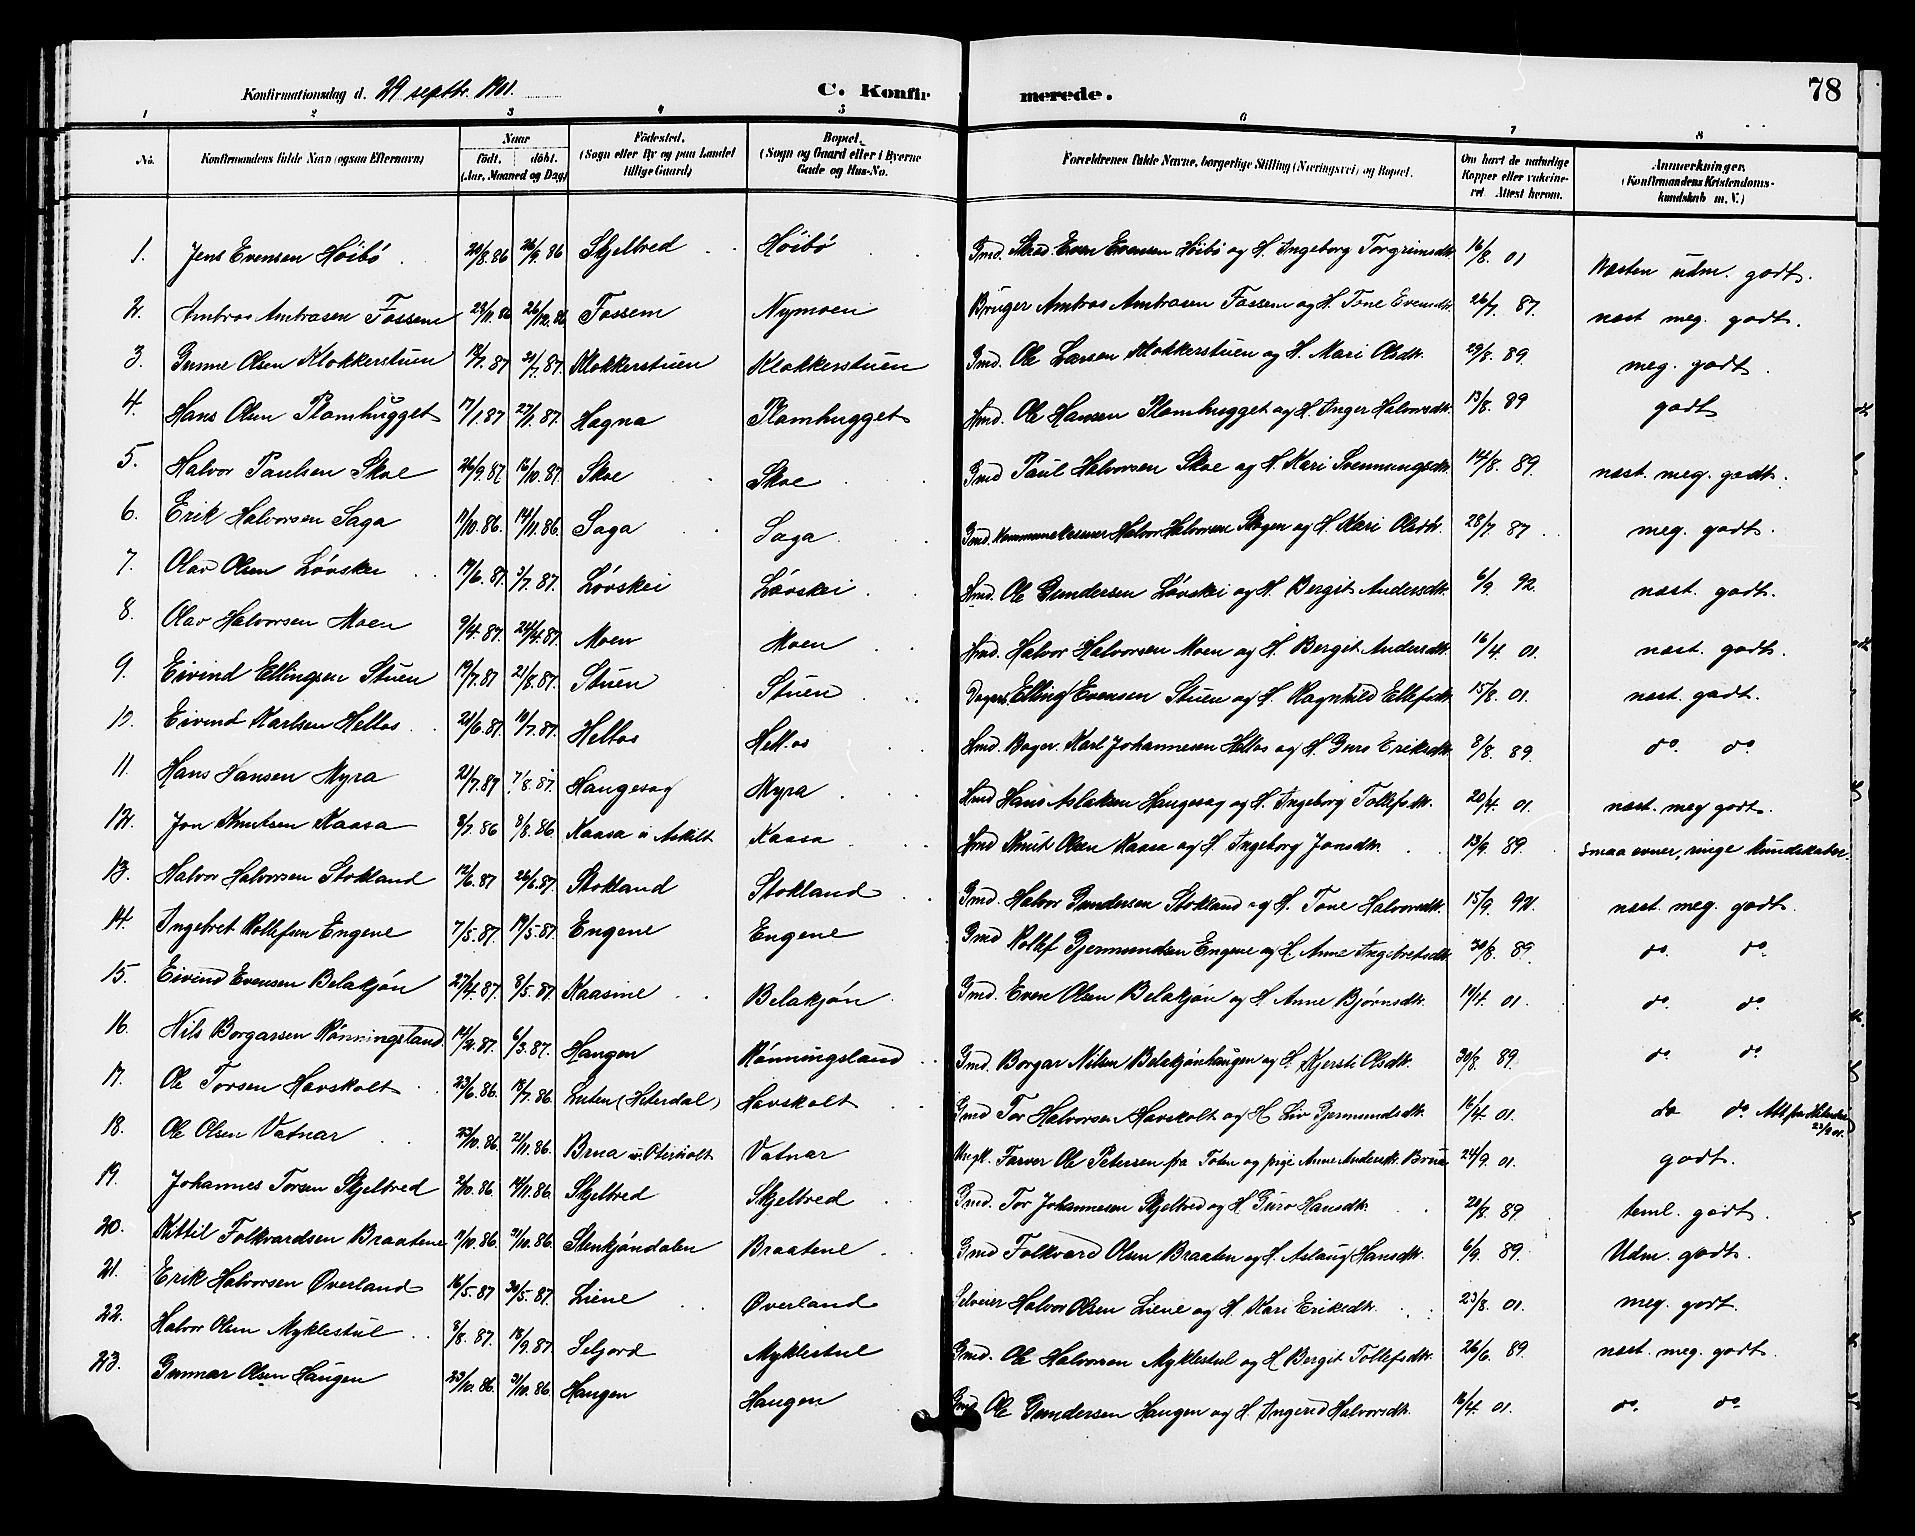 Konfirmationsdag d. 29 septbr. 1901. C. Konfirmerede. 78
1 2 3 4 5 6 7 8
No. Konfirmandens fulde Navn (ogsaa Efternavn) Naar födt. döbt. (Aar, Maaned og Dag) Födested. (Sogn eller By og paa Landet tillige Gaard) Bopæl. (Sogn og Gaard eller i Byerne Gade og Hus-No. Forældrenes fulde Navne, borgerlige Stilling (Næringsvei) og Bopæl. Om havt de naturlige Kopper eller vakcineret Attest herom. Anmerkninger. (Konfirmandens Kristendomskundskab m. V.)
1. Jens Evensen Höibö 20/8.86 26/9.86 Skjelbred Höibö Gmd. Even Evensen Höibö og H. Ingeborg Torgrimsdtr. 16/8. 01 Næsten udm. godt.
2. Ambros Ambrosen Fossem 24/11.86 26/12.86 Fossem Nymoen Bruger Ambros Ambrosen Fossem og H. Tone Evensdtr. 26/7. 87. næst meg. godt.
3. Gunne Olsen Klokkerstuen 18/7.87 31/7.87. Klokkerstuen Klokkerstuen Gmd. Ole Larsen Klokkerstuen og H. Mari Olsdtr. 29/8. 89. meg. godt.
4. Hans Olsen Plomhugget 17/1.87 27/1.87. Hagna Plomhugget Hmd. Ole Hansen Plomhugget og H. Inger Halvorsdtr. 13/8. 89 godt
5. Halvor Paulsen Skoe 26/9.87 16/10.87. Skoe Skoe Gmd Paul Halvorsen Skoe og H. Kari Svennungsdtr. 14/8. 89. næst. meg. godt.
6. Erik Halvorsen Saga 17/10.86. 14/11.86. Saga Saga Gmd. Kommunekasserer Halvor Halvorsen og H. Kari Olsdtr. 28/7. 87. meg. godt.
7. Olav Olsen Lövskei 17/6.87. 3/7.87. Lövskei Lövskei Hmd. Ole Gundersen Lövskei og H. Bergit Andersdtr. 6/9. 92. næst. godt.
8. Olav Halvorsen Moen 9/4.87. 24/4.87. Moen Moen Hmd. Halvor Halvorsen Moen og H. Bergit Andersdtr. 16/4. 01. næst. godt.
9. Eivind Ellingsen Stuen 19/7.87 21/8.87. Stuen Stuen Elling Evensen Stuen og H. Ragnhild Ellefsdtr. 15/8. 01. næst. godt.
10. Eivind Karlsen Heltos 21/6.87. 10/7.87. Heltos Heltos Hmd. Bager. Karl Johannesen Heltos og H Guro Eriksdtr. 8/8. 89. do. do.
11. Hans Hansen Myra 21/7.87 7/8.87. Haugesag Myra Hmd Hans Aslaksen Haugesag og H. Ingeborg Tollefsdtr. 20/4. 01. næst. meg godt.
12. Jon Knutsen Kaasa 3/7.86 8/8.86. Kaasa u Askilt Kaasa Hmd Knut Olsen Kaasa og H. Ingeborg Jonsdtr. 13/9. 89. smaa evner, ringe kundskaber.
13. Halvor Halvorsen Stokland 12/6.87 26/6.87. Stokland Stokland Gmd. Halvor Gundersen Stokland og H. Tone Halvorsdtr. 15/9. 92. næst. meg. godt.
14. Ingebret Rollefsen Engene 7/5.87. 19/5.87. Engene Engene Gmd Rollef Gjermundsen Engene og H. Anne Ingebretsdtr. 30/8. 89. do. do.
15. Eivind Evensen Belakjön 27/4.87. 8/5.87. Kaasine Belakjön Gmd. Even Olsen Belakjön og H Anne Björnsdtr. 01. do. do.
16. Nils Borgarsen Rönningsland. 14/2.87. 6/3.87. Haugen Rönningsland Gmd. Borgar Nilsen Belakjönhaugen og H. Kjersti Olsdtr. 30/8. 89. do do.
17. Ole Torsen Havskolt 23/6.86. 18/7.86. (Hiterdal) Havskolt Gmd Tor Halvorsen Havskolt og H Liv Gjermundsdtr. 16/4. 01. do do.
18. Ole Olsen Vatnar 23/10.86. 21/11.86. Brua u. Oterholt Vatnar Ungk. Farver Ole Petersen fra Toten og pige Anne Andersdtr. Brua 24/9. 01. godt.
19. Johannes Torsen Skjelbred 2/10.86. 14/11.86. Skjelbred Skjelbred Gmd. Tor Johannesen Skjelbred og H. Guro Hansdtr. 20/8. 89 teml. godt.
20. Kittil Folkvardsen Braatene 11/10.86. 31/10.86. Stenkjöndalen Braatene Gmd Folkvard Olsen Braaten og H. Aslaug Hansdtr. 6/9. 89. Udm. godt.
21. Erik Halvorsen Överland 16/5.87 30/5.87. Liene Överland Selveier Halvor Olsen Liene og H. Kari Eriksdtr. 23/8. 01. meg. godt.
22. Halvor Olsen Myklestul 8/8.87. 18/9.87. Seljord Myklestul Gmd. Ole Halvorsen Myklestul og H Bergit Tollefsdtr. 26/6. 89. næst. meg. godt.
23. Gunnar Olsen Haugen 23/10.86. 31/10.86. Haugen Haugen Gmd Ole Gundersen Haugen og H. Ingerid Halvorsdtr. 16/4. 01. do. do.